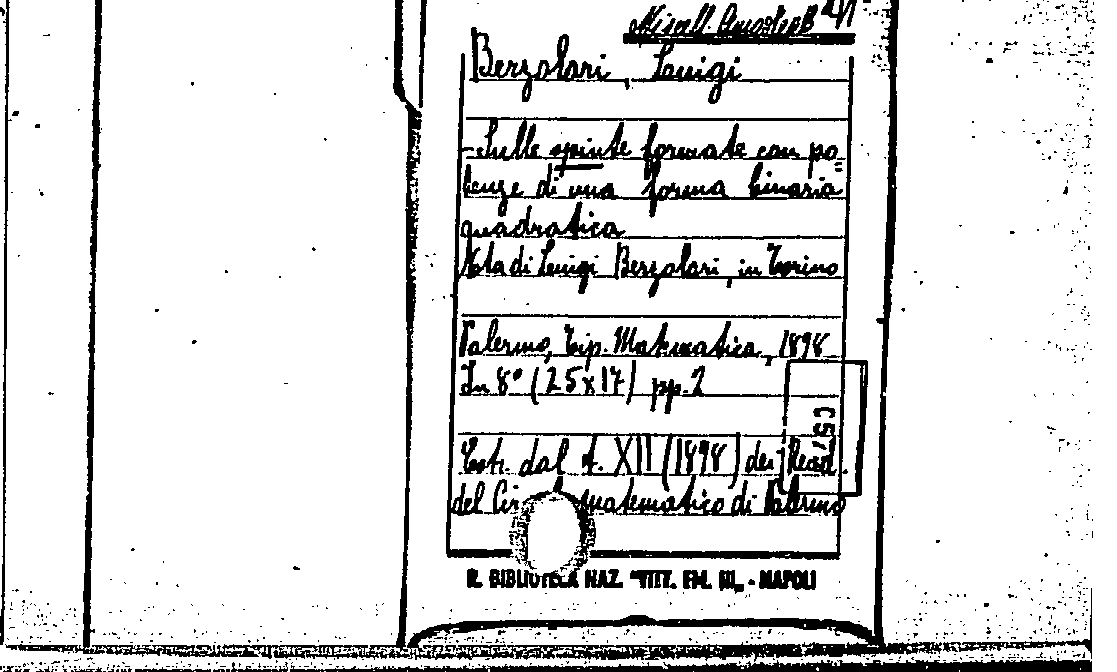 Miscell. B
Berzolari, Luigi
-Sulle spinte formate con po=
tenze di una forma binaria
quadratica
Nota di Luigi Berzolari, in Torino
Palermo, Tip. Matematica, 1898
In 8° (25x17) pp. 2
Estr. dal t. XII (1898) dei Rend.
del Cir matematico di Palermo
C 57
R. BIBLIOTECA NAZ. "VITT. EM. III„ - NAPOLI